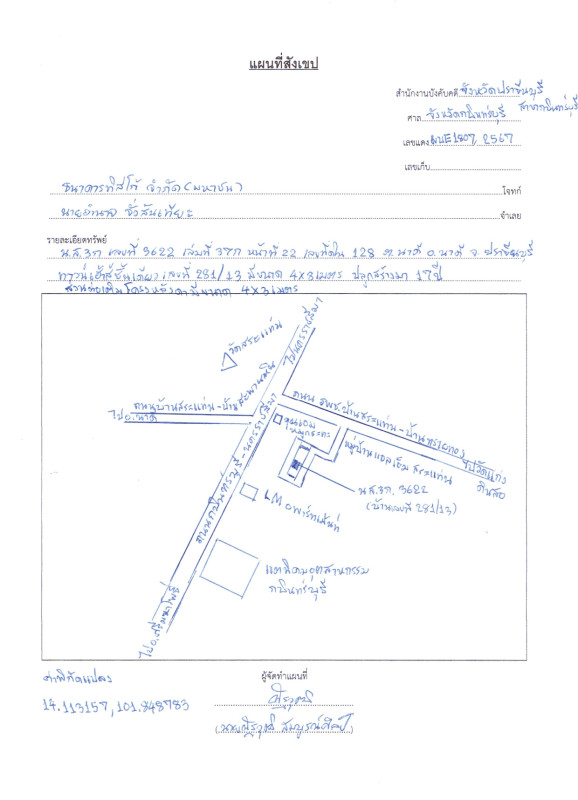 แผนที่สังเขป
สำนักงานบังคับคดี จังหวัดปราจีนบุรี
สาขากบินทร์บุรี
ศาล จังหวัดกบินทร์บุรี
เลขแดง ผบE1807/2567
เลขเก็บ
ธนาคารทิสโก้ จำกัด (มหาชน) โจทก์
นายอำนาจ จำเลย
รายละเอียดทรัพย์
น.ส.3ก เลขที่ 3622 เล่มที่ 37ก หน้าที่ 22 เลขที่ดิน 128 ต.นาดี อ.นาดี จ.ปราจีนบุรี
ทาวน์เฮ้าส์ชั้นเดียว เลขที่ 281/13 มีขนาด 4x3เมตร ปลูกสร้างมา 17ปี
ส่วนต่อเติมโครงหลังคามีขนาด 4x3เมตร
วัดสระแท่น
ไปนครราชสีมา
ถนนบ้านสระแท่น-บ้าน
ไปอ.นาดี
ถนน อพช.บ้านสระแท่น-บ้านทรายทอง
ไปวัดแก่ง
ดินสอ
หมูกระทะ
หมู่บ้านแอลเอ็ม สระแท่น
ถนนกบินทร์บุรี-นครราชสีมา
น.ส.3ก. 3622
(บ้านเลขที่ 281/13)
LM อพาร์ทเม้นท์
เขตนิคมอุตสาหกรรม
กบินทร์บุรี
ไปอ.ศรีมหาโพธิ
ค่าพิกัดแปลง
14.113157,101.848783
ผู้จัดทำแผนที่